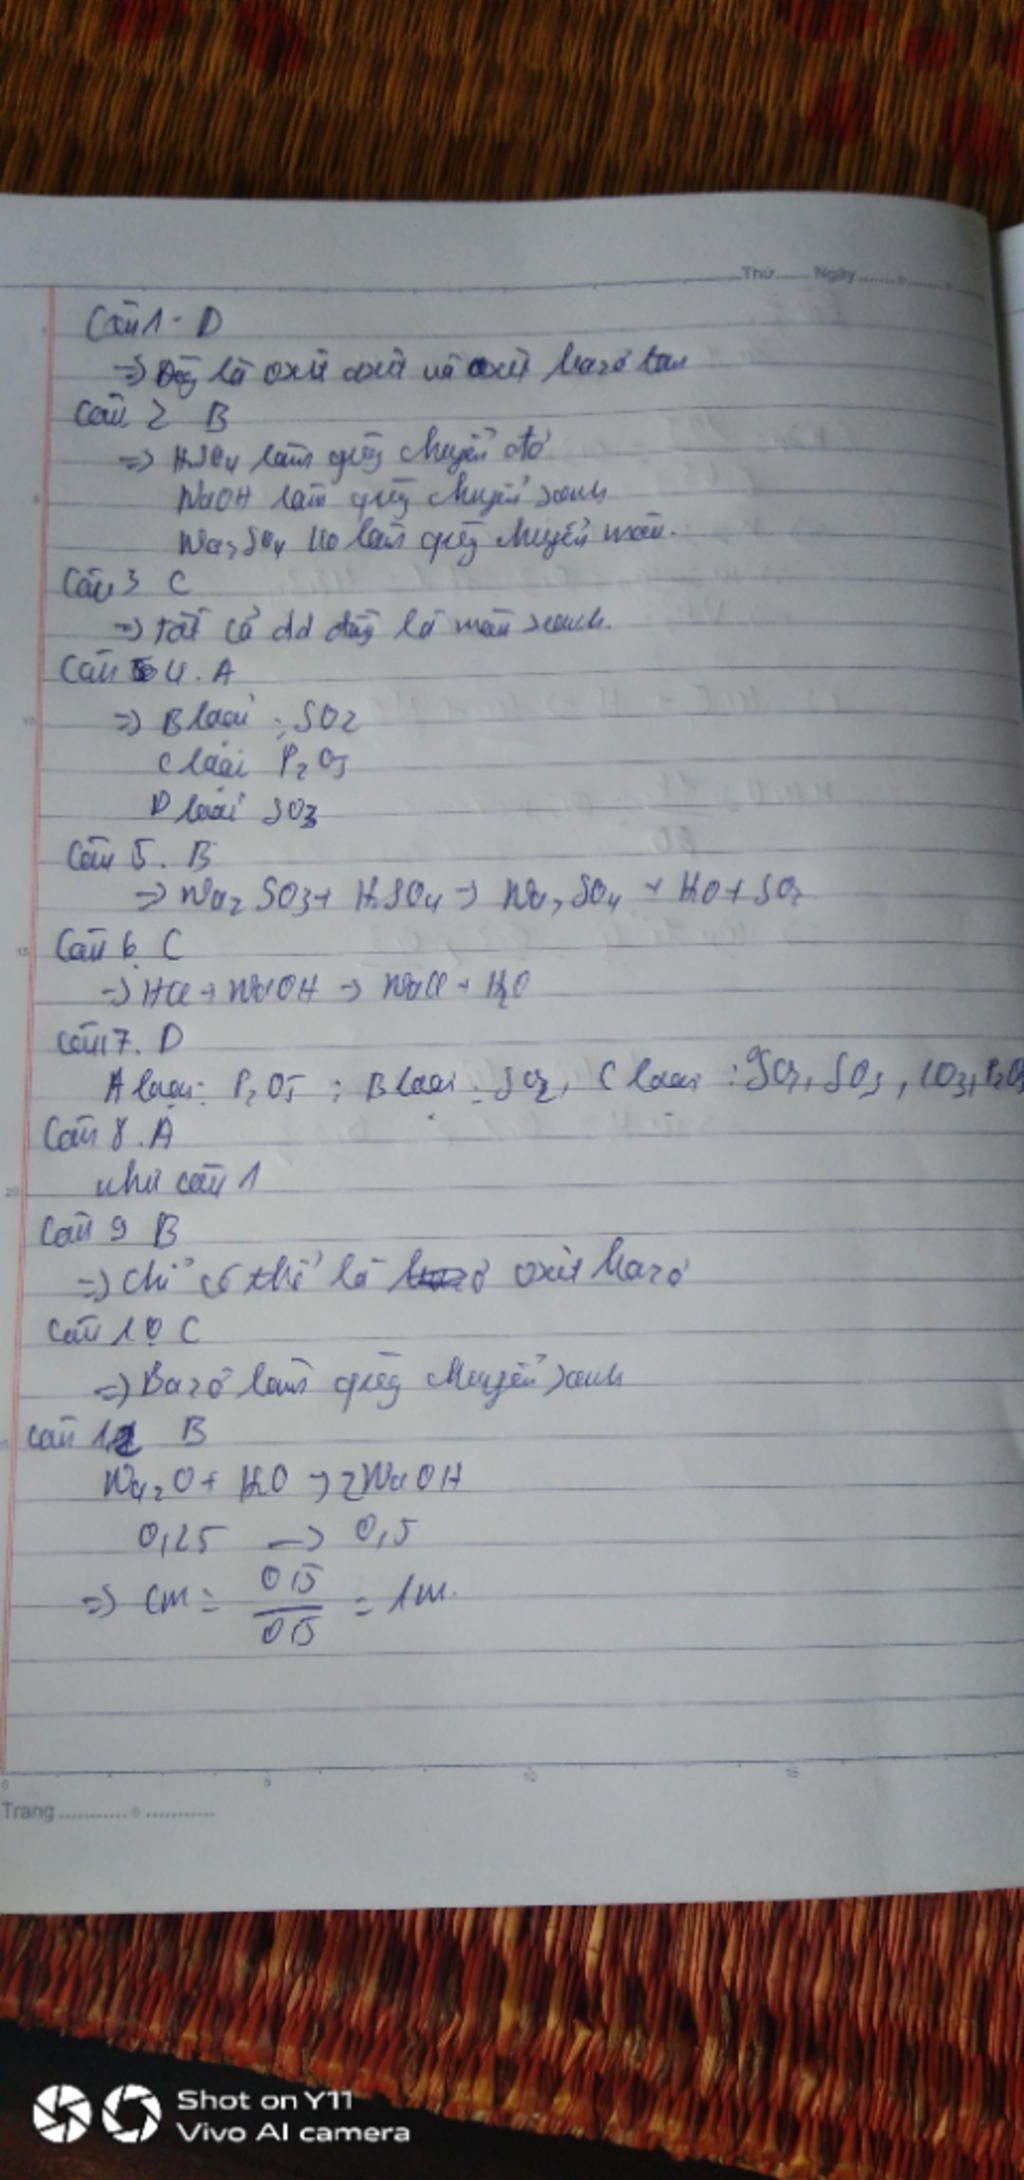 Thứ Ngày
Câu 1. D
=> Đây là oxit axit và oxit bazơ tan
Câu 2 B
=> H2SO4 làm quỳ chuyển đỏ
NaOH làm quỳ chuyển xanh
Na2SO4 ko làm quỳ chuyển màu.
Câu 3 C
=> tất cả dd đây là màu xanh.
Câu 4. A
=> B loại : SO2
C loại P2O5
D loại SO3
Câu 5. B
=> Na2SO3 + H2SO4 -> Na2SO4 + H2O + SO2
Câu 6. C
-> HCl + NaOH -> NaCl + H2O
Câu 7. D
A loại: P2O5 ; B loại : SO2, C loại : SO2, SO3, CO2, P2O5
Câu 8. A
như câu 1
Câu 9 B
=> Chỉ có thể là oxit bazơ
Câu 10 C
=> Bazơ làm quỳ chuyển xanh
Câu 12 B
Na2O + H2O -> 2NaOH
0,25 -> 0,5
=> CM = 0,5 / 0,5 = 1M.
0 5 10 15
Trang
Shot on Y11
Vivo AI camera